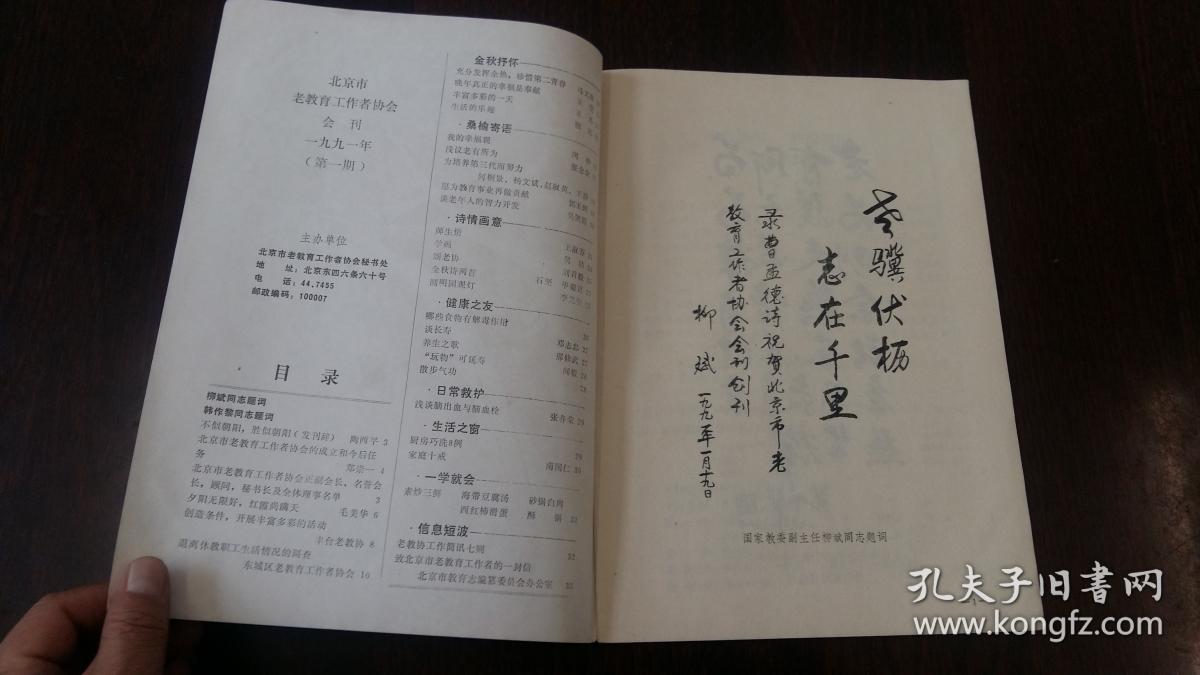 北京市
老教育工作者协会
会刊
一九九一年
(第一期)
主办单位
北京市老教育工作者协会秘书处
地 址:北京东四六条六十号
电 话:44.7455
邮政编码:100007
目 录
柳斌同志题词
韩作黎同志题词
不似朝阳,胜似朝阳(发刊辞) 陶西平 3
北京市老教育工作者协会的成立和今后任
务 郑崇一 4
北京市老教育工作者协会正副会长、名誉会
长,顾问,秘书长及全体理事名单 3
夕阳无限好,红霞尚满天 毛美华 6
创造条件,开展丰富多彩的活动
丰台老教协 8
退离休教职工生活情况的调查
东城区老教育工作者协会 10
金秋抒怀
充分发挥余热,珍惜第二青春
晚年真正的幸福是奉献
丰富多彩的一天
生活的乐趣
·桑榆寄语
我的幸福观
浅议老有所为
为培养第三代而努力
何桐景、杨文斌、赵淑英、
愿为教育事业再做贡献
谈老年人的智力开发
·诗情画意
师生情
学画
颂老协
金秋诗两首 石坚
圆明园观灯
·健康之友
哪些食物有解毒作用 20
谈长寿 邓志忠 27
养生之歌 邵修武 27
“玩物”可延寿
散步气功 28
·日常救护
浅谈脑出血与脑血栓 张春荣 29
·生活之窗
厨房巧洗8例 29
家庭十戒 南国仁 30
·一学就会
素炒三鲜 海带豆腐汤 砂锅白肉
西红柿滑蛋 酥 锅 31
·信息短波
老教协工作简讯七则 32
致北京市老教育工作者的一封信
北京市教育志编纂委员会办公室 33
老骥伏枥
志在千里
录曹孟德诗祝贺北京市老
教育工作者协会会刊创刊
柳斌 一九九一年一月十九日
国家教委副主任柳斌同志题词
孔夫子旧书网
www.kongfz.com